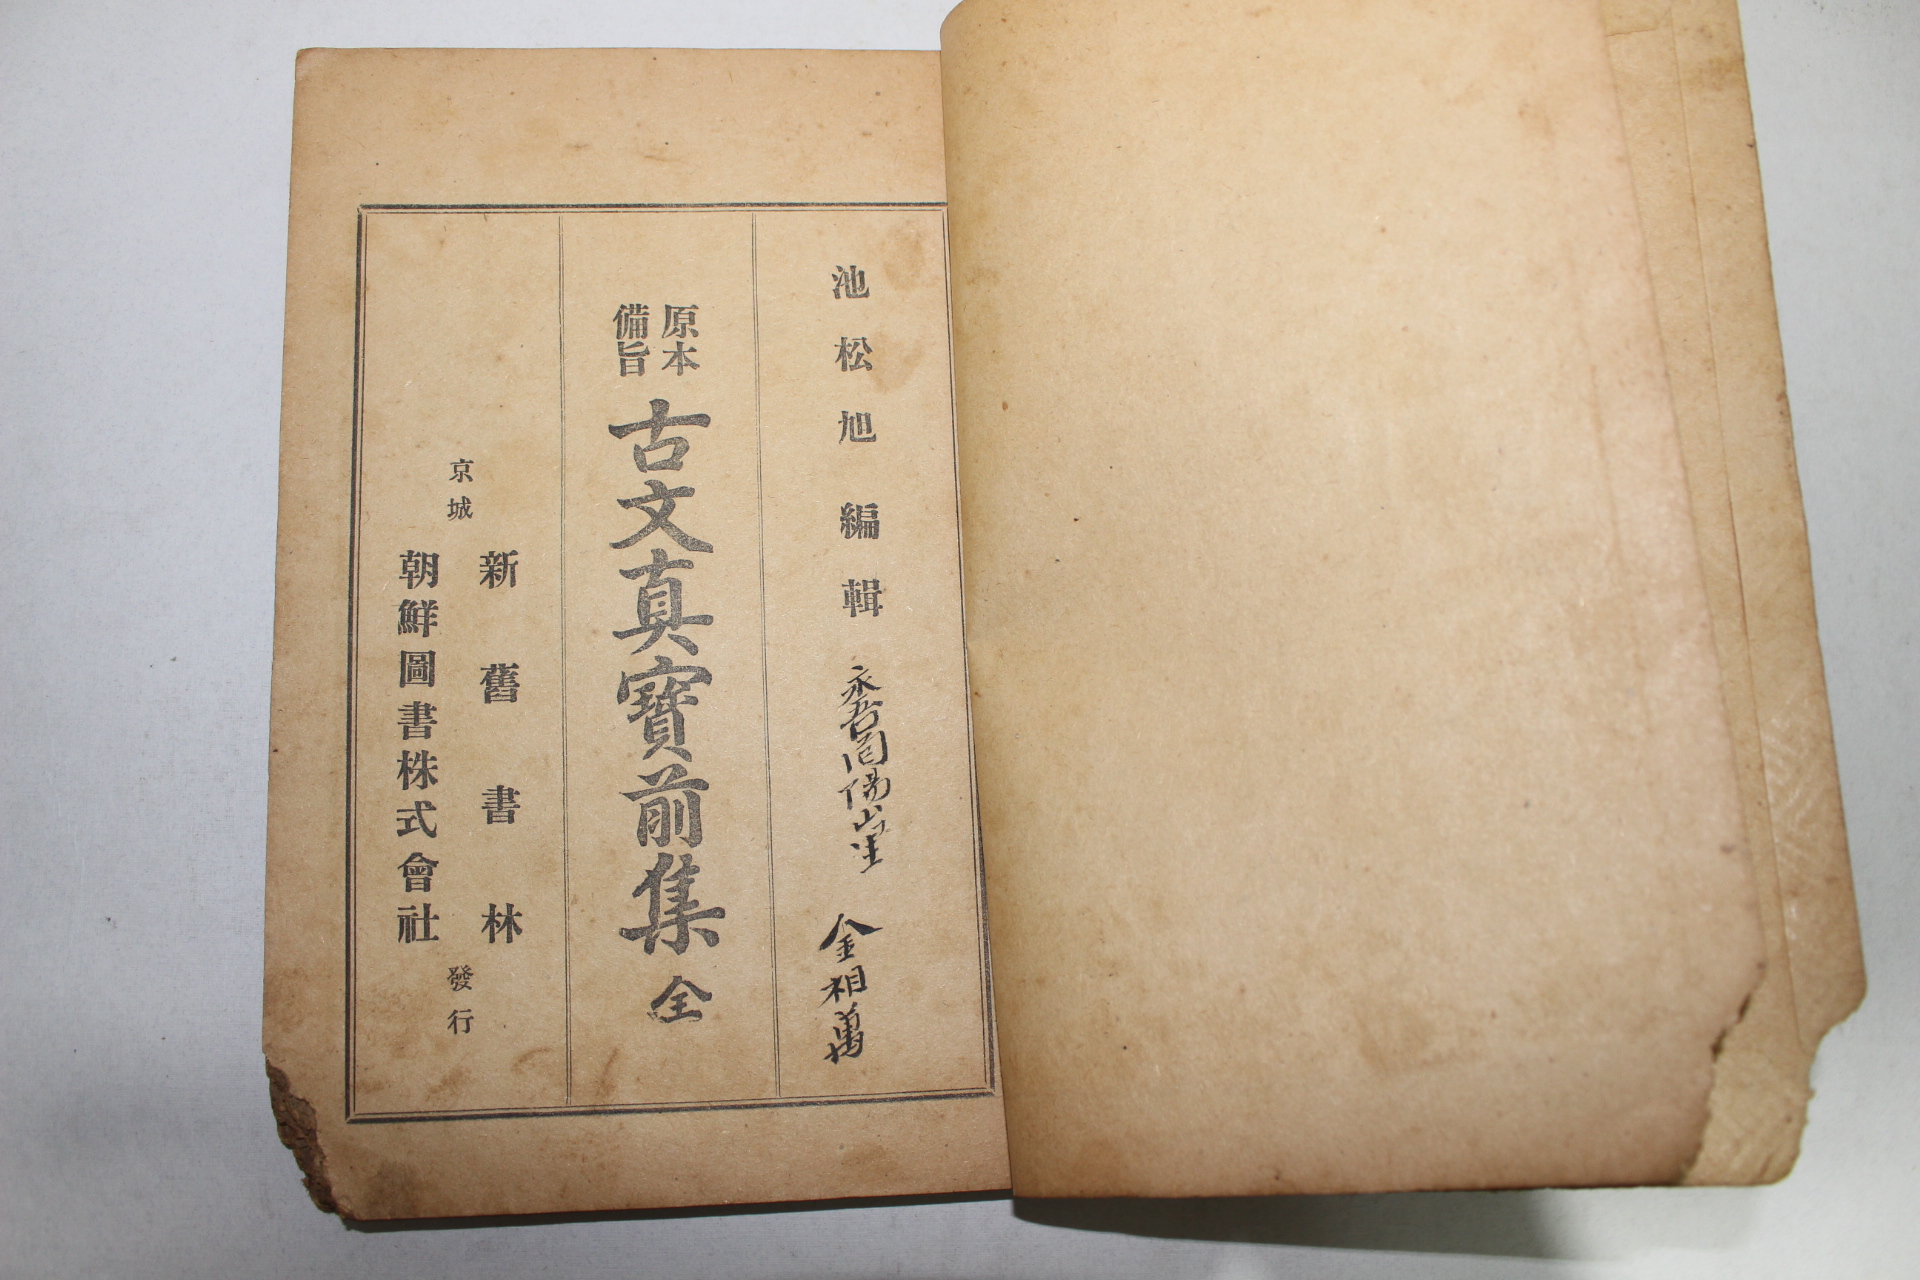 池松旭 編輯
金相萬
原本
備旨
古文眞寶前集 全
京城
新舊書林
朝鮮圖書株式會社
發行